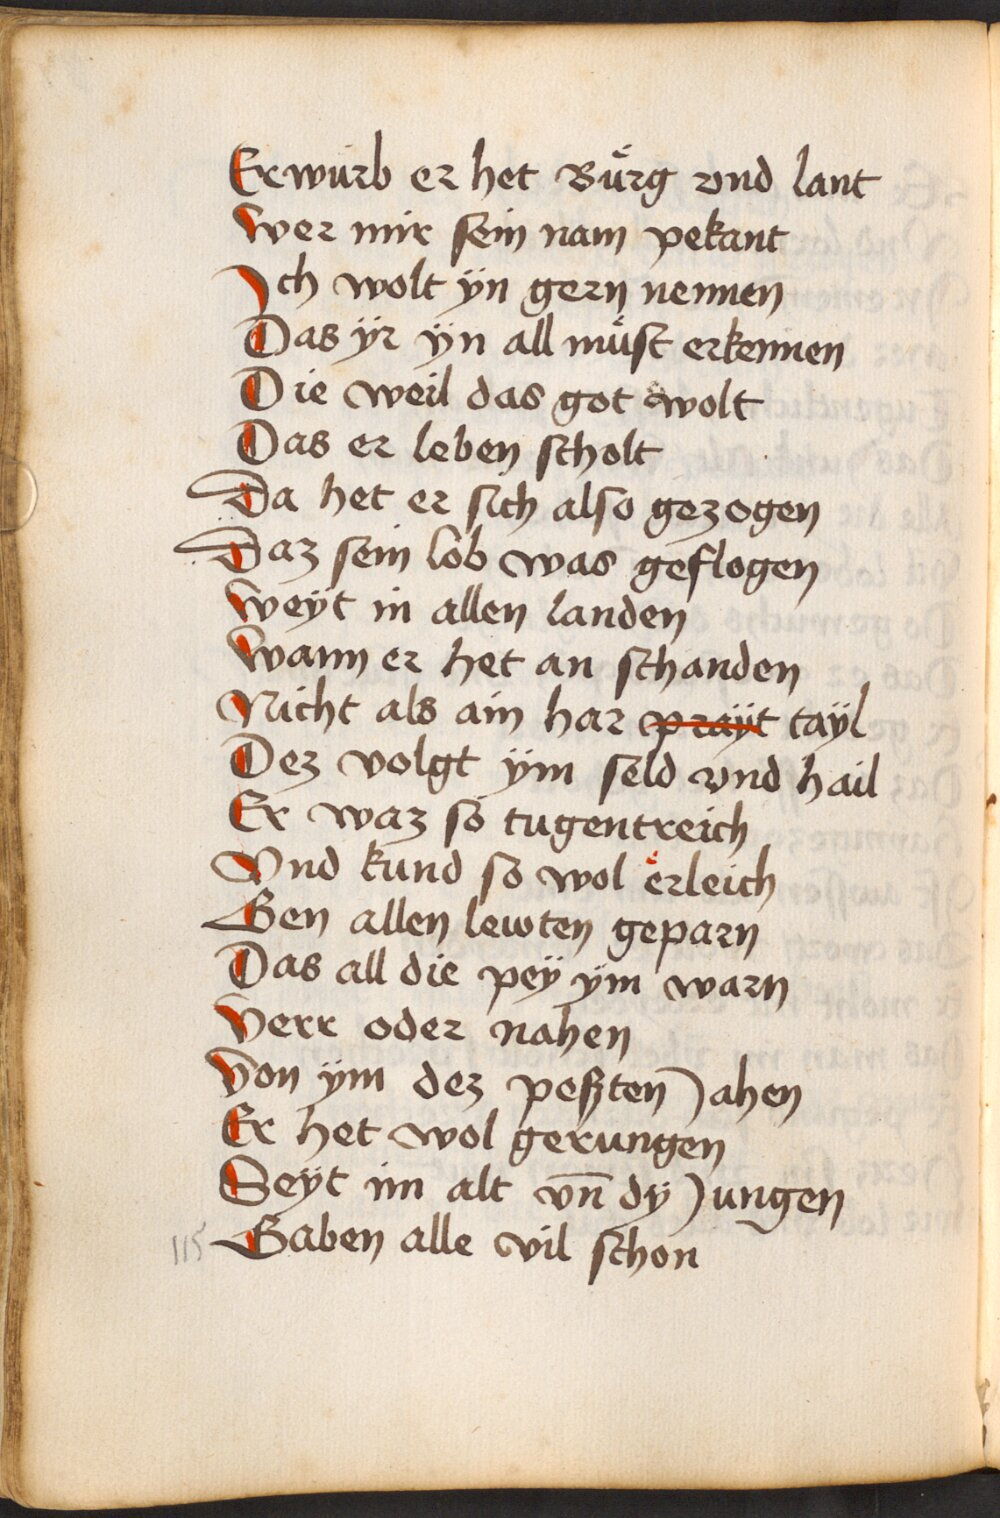 Erwurb er het Bu̎rg vnd lant
Wer mir sein nam pekant
Ich wolt ÿn gern nennen
Das ÿr ÿn all mu̎st erkennen
Die weil das got wolt
Das er leben scholt
Da het er sich also gezogen
Daz sein lob was geflogen
Weÿt in allen landen
Wann er het an schanden
Nicht als ain har praÿt taÿl
Dez volgt ÿm seld vnd hail
Er waz so tugentreich
Vnd kund so wol erleich
Gen allen lewten geparn
Das all die peÿ ÿm warn
Verr oder nahen
Von ÿm dez peßten Jahen
Er het wol gerungen
Seÿt im alt vn̄ dÿ Jungen
115 Gaben alle vil schon